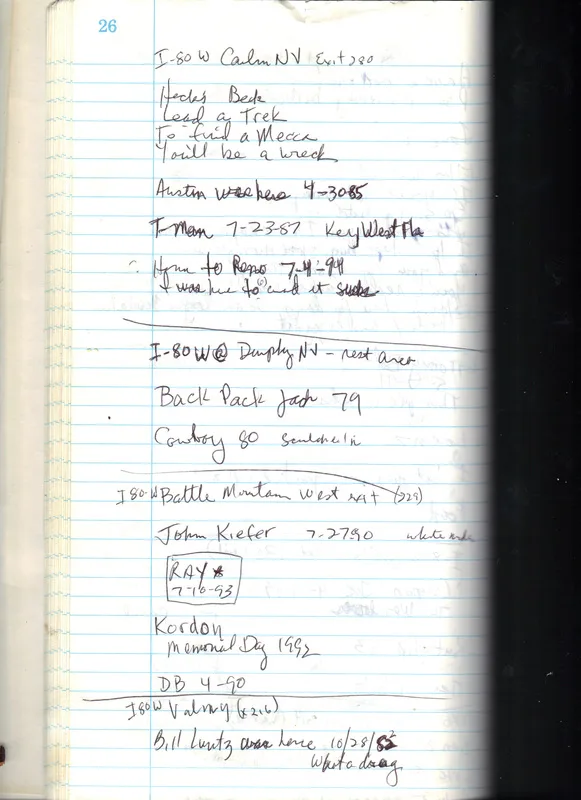 26
I-80 W Carlin NV Exit 280
Heck's Beck
Lead a Trek
To find a Mecca
You'll be a wreck
Austin was here 4-30-85
T-Man 7-23-87 Key West Fla
to Reno 7-4-94
I was here to and it sucks
I-80 W @ Dunphy NV - rest area
Back Pack Jack 79
Cowboy 80
I 80-W Battle Mountain West exit (229)
John Kiefer 7-27-90 white
RAY
7-10-93
Kordon
Memorial Day 1992
DB 4-90
I 80 W Valmy (x216)
Bill Luntz was here 10/28/82
What a drag